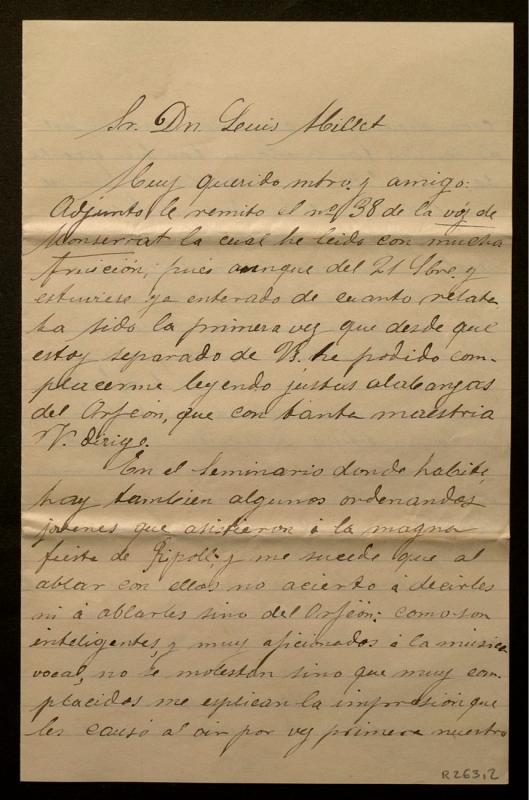 Sr. Dn. Luis Millet
Muy querido mtro. y amigo:
Adjunto le remito el nº 38 de la vóz de
Monserrat la cual he leido con mucha
fruición, pues aunque del 21 Sbre. y
estuviese ya enterado de cuanto relata
ha sido la primera vez que desde que
estoy separado de V. he podido com-
placerme leyendo justas alabanzas
del Orfeón, que con tanta maestria
V. dirige.
En el Seminario donde habito,
hay tambien algunos ordenandos
jovenes que asistieron á la magna
fiesta de Ripoll; y me sucede que al
ablar con ellos no acierto á decirles
ni á ablarles sino del Orfeón: como son
inteligentes, y muy aficionados á la musica
vocal, no se molestan sino que muy com-
placidos me esplican la impresión que
les causó al oir por vez primera nuestro
R263,2